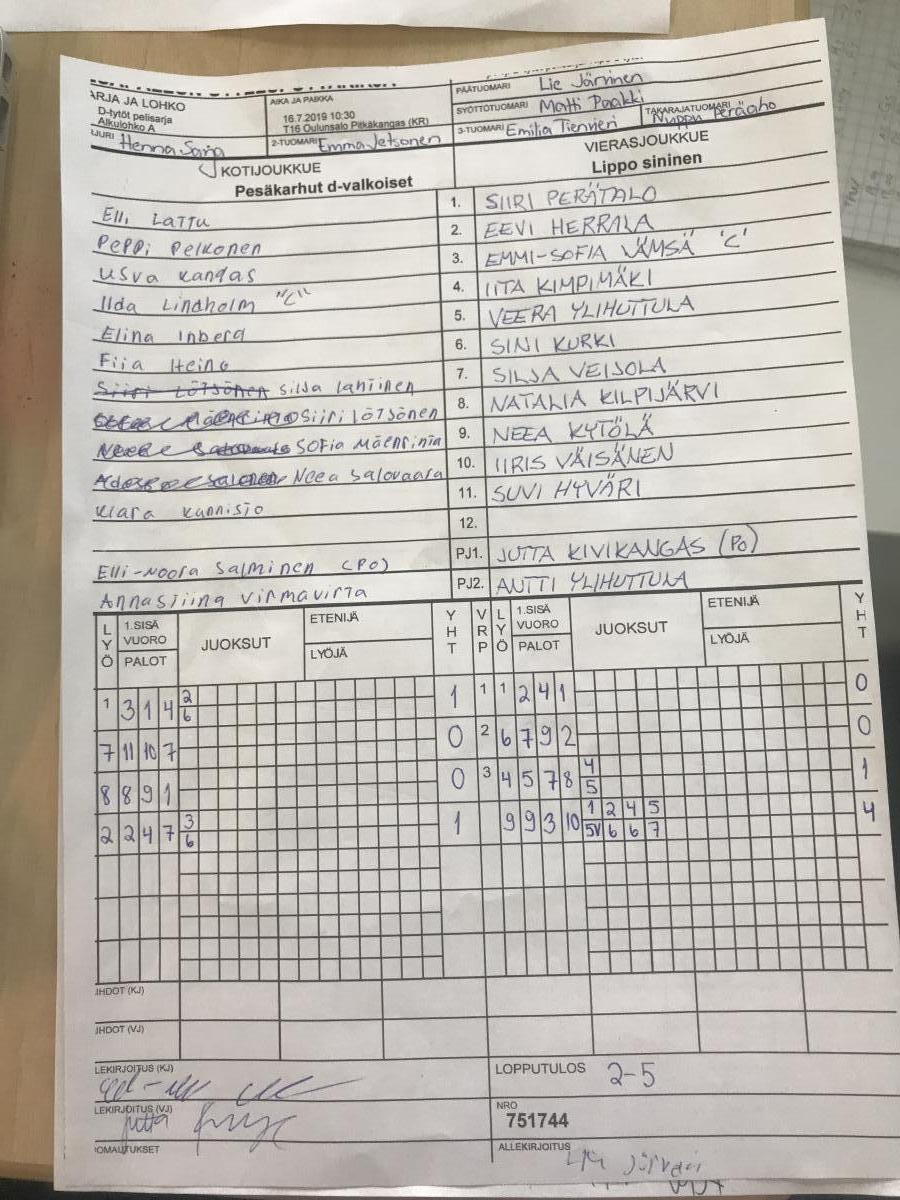 ARJA JA LOHKO
D-tytöt pelisarja
Alkulohko A
AIKA JA PAIKKA
16.7.2019 10:30
T16 Oulunsalo Pitkäkangas (KR)
PÄÄTUOMARI
SYÖTTÖTUOMARI Matti Paakki
TAKARAJATUOMARI
JURI Henna
2-TUOMARI Emma
3-TUOMARI Emilia
KOTIJOUKKUE
Pesäkarhut d-valkoiset
VIERASJOUKKUE
Lippo sininen
Elli Lattu 1. SIIRI PERÄTALO
Peppi Pelkonen 2. EEVI HERRALA
Usva Kangas 3. EMMI-SOFIA VÄMSÄ "C"
Ilda Lindholm "C" 4. IITA KIMPIMÄKI
Elina Inberg 5. VEERA YLIHUTTULA
Fiia Heino 6. SINI KURKI
Siiri Lötsönen silja lahtinen 7. SILJA VEIJOLA
Siiri Lötsönen 8. NATALIA KILPIJÄRVI
Sofia 9. NEEA KYTÖLÄ
Neea Salovaara 10. IIRIS VÄISÄNEN
Klara Kannisto 11. SUVI HYVÄRI
12.
Elli-Noora Salminen (PO) PJ1. JUTTA KIVIKANGAS (PO)
Annastiina Virmavirta PJ2. ANTTI YLIHUTTULA
LYÖ 1.SISÄ VUORO PALOT JUOKSUT ETENIJÄ LYÖJÄ YHT VRP LYÖ 1.SISÄ VUORO PALOT JUOKSUT ETENIJÄ LYÖJÄ YHT
1 3 1 4 2 6 1 1 1 2 4 1 0
7 11 10 7 0 2 6 7 9 2 0
8 8 9 1 0 3 4 5 7 8 4 5 1
2 2 4 7 3 6 1 9 9 3 10 1 2 4 5 4
5V 6 6 7
IHDOT (KJ)
IHDOT (VJ)
LEKIRJOITUS (KJ)
LOPPUTULOS 2-5
LEKIRJOITUS (VJ) Jutta
NRO
751744
OMAUTUKSET
ALLEKIRJOITUS